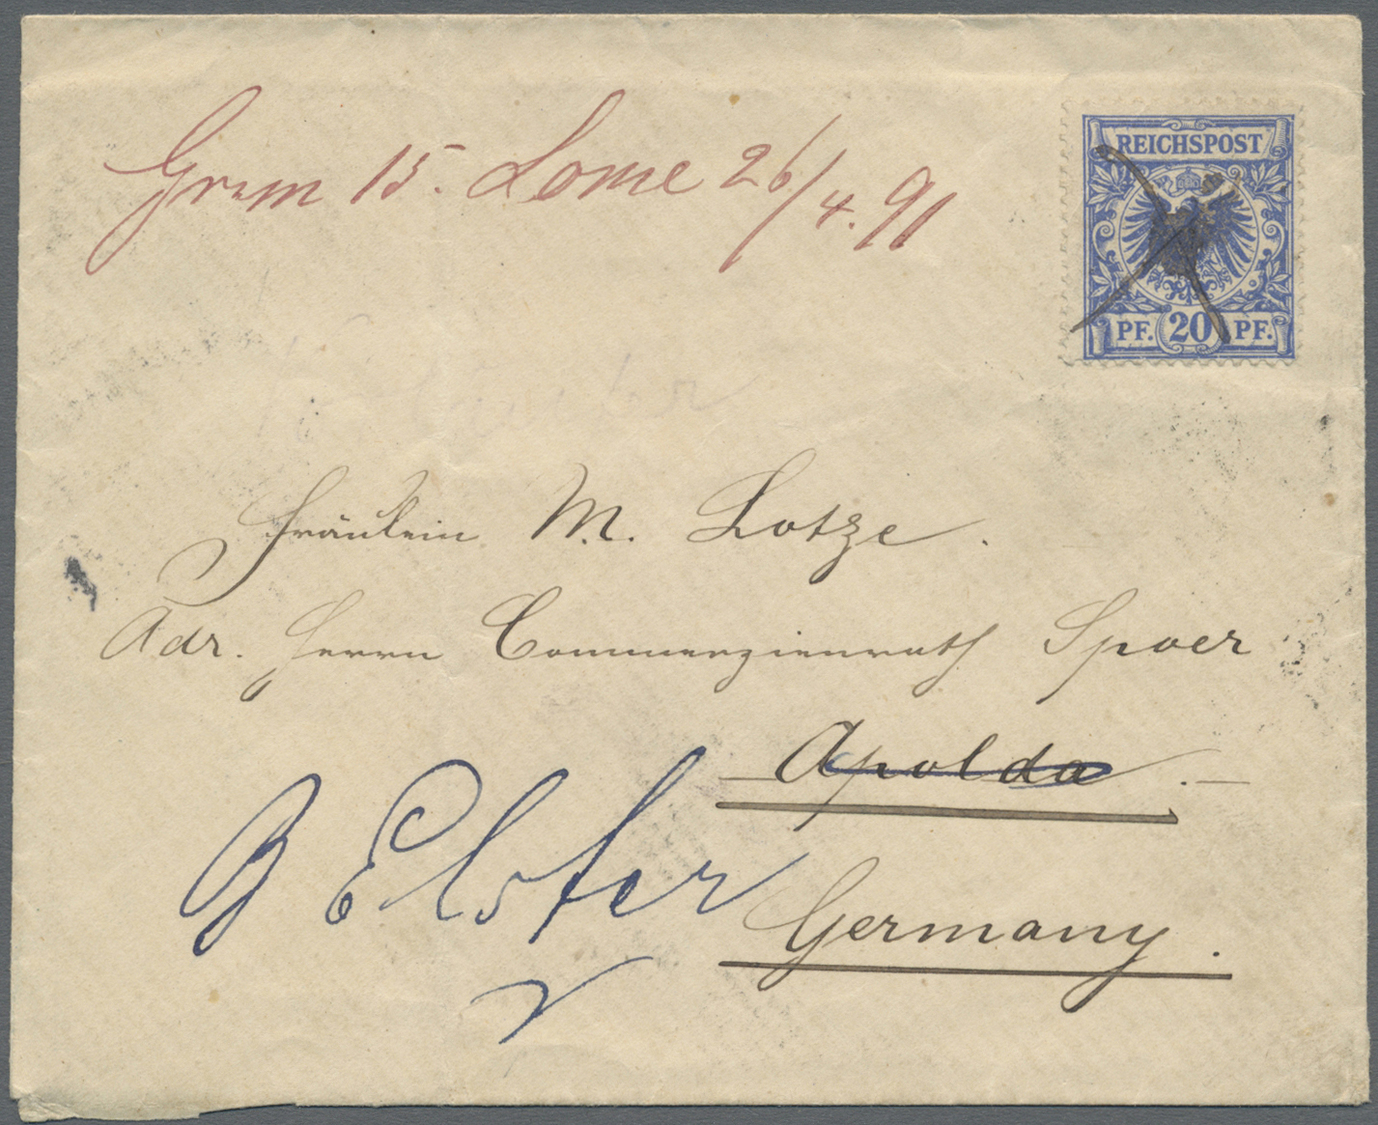 Grm 15. Lome 26/4.91
REICHSPOST
PF. 20 PF.
Fräulein M. Lotze.
Adr. Herrn Commerzienrath Spoer
Apolda.
B Elster
Germany.